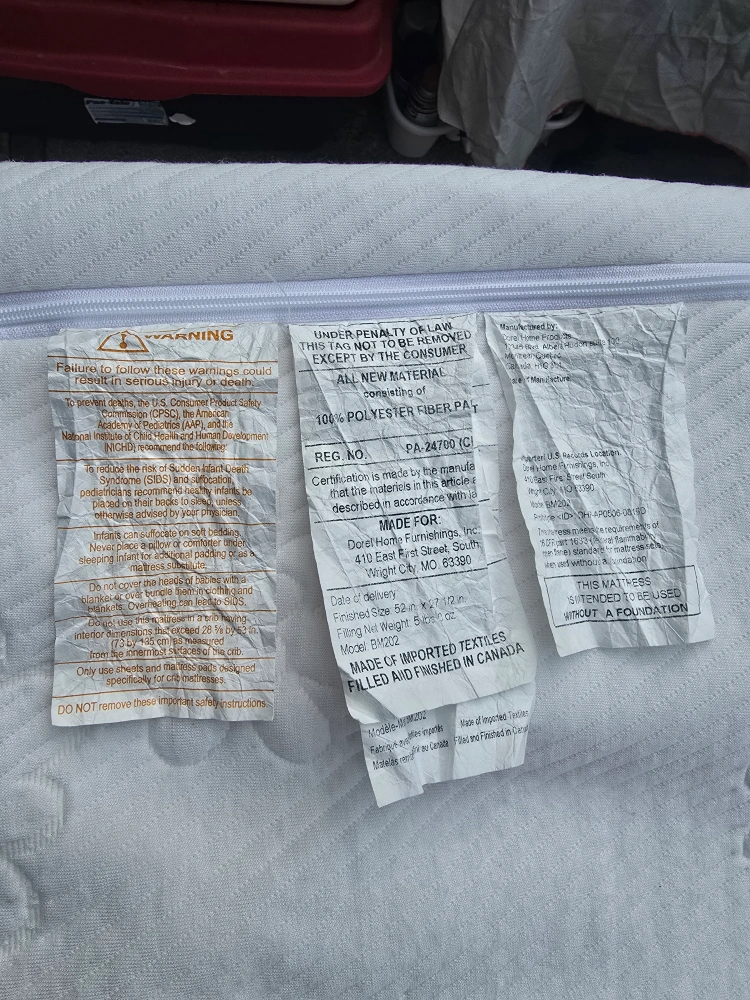 WARNING
Failure to follow these warnings could
result in serious injury or death.
To prevent deaths, the U.S. Consumer Product Safety
Commission (CPSC), the American
Academy of Pediatrics (AAP), and the
National Institute of Child Health and Human Development
(NICHD) recommend the following:
To reduce the risk of Sudden Infant Death
Syndrome (SIDS) and suffocation,
pediatricians recommend healthy infants be
placed on their backs to sleep, unless
otherwise advised by your physician.
Infants can suffocate on soft bedding.
Never place a pillow or comforter under
sleeping infant for additional padding or as a
mattress substitute.
Do not cover the heads of babies with a
blanket or over bundle them in clothing and
blankets. Overheating can lead to SIDS.
Do not use this mattress in a crib having
interior dimensions that exceed 28 ⅝ by 53 in.
(73 by 135 cm) as measured
from the innermost surfaces of the crib.
Only use sheets and mattress pads designed
specifically for crib mattresses.
DO NOT remove these important safety instructions
UNDER PENALTY OF LAW
THIS TAG NOT TO BE REMOVED
EXCEPT BY THE CONSUMER
ALL NEW MATERIAL
consisting of
100% POLYESTER FIBER PA T
REG. NO. PA-24700 (C
Certification is made by the manufa
that the materials in this article a
described in accordance with la
MADE FOR:
Dorel Home Furnishings, Inc.
410 East First Street, South
Wright City, MO. 63390
Date of delivery
Finished Size: 52 in. x 27 1/2 in.
Filling Net Weight: 5 lbs oz.
Model: BM202
MADE OF IMPORTED TEXTILES
FILLED AND FINISHED IN CANADA
Modèle- BM202
Fabriqué avec tiles importés
Matelas rem ni au Canada
Made of Imported Textiles
Filled and Finished in Can
Manufactured by:
Dorel Home Products
Albert Hudon suite 100
Montreal Quebec
Canada H1G 3L1
Date of Manufacture:
U.S Records Location:
Dorel Home Furnishings, Inc.
410 East First Street South
Wright City, MO 63390
Model BM202
Prototype <ID>
This mattress meets the requirements of
16 CFR part 1633 (federal flammability
open flame) standard for mattress sets
when used without a foundation
THIS MATTRESS
IS INTENDED TO BE USED
WITHOUT A FOUNDATION